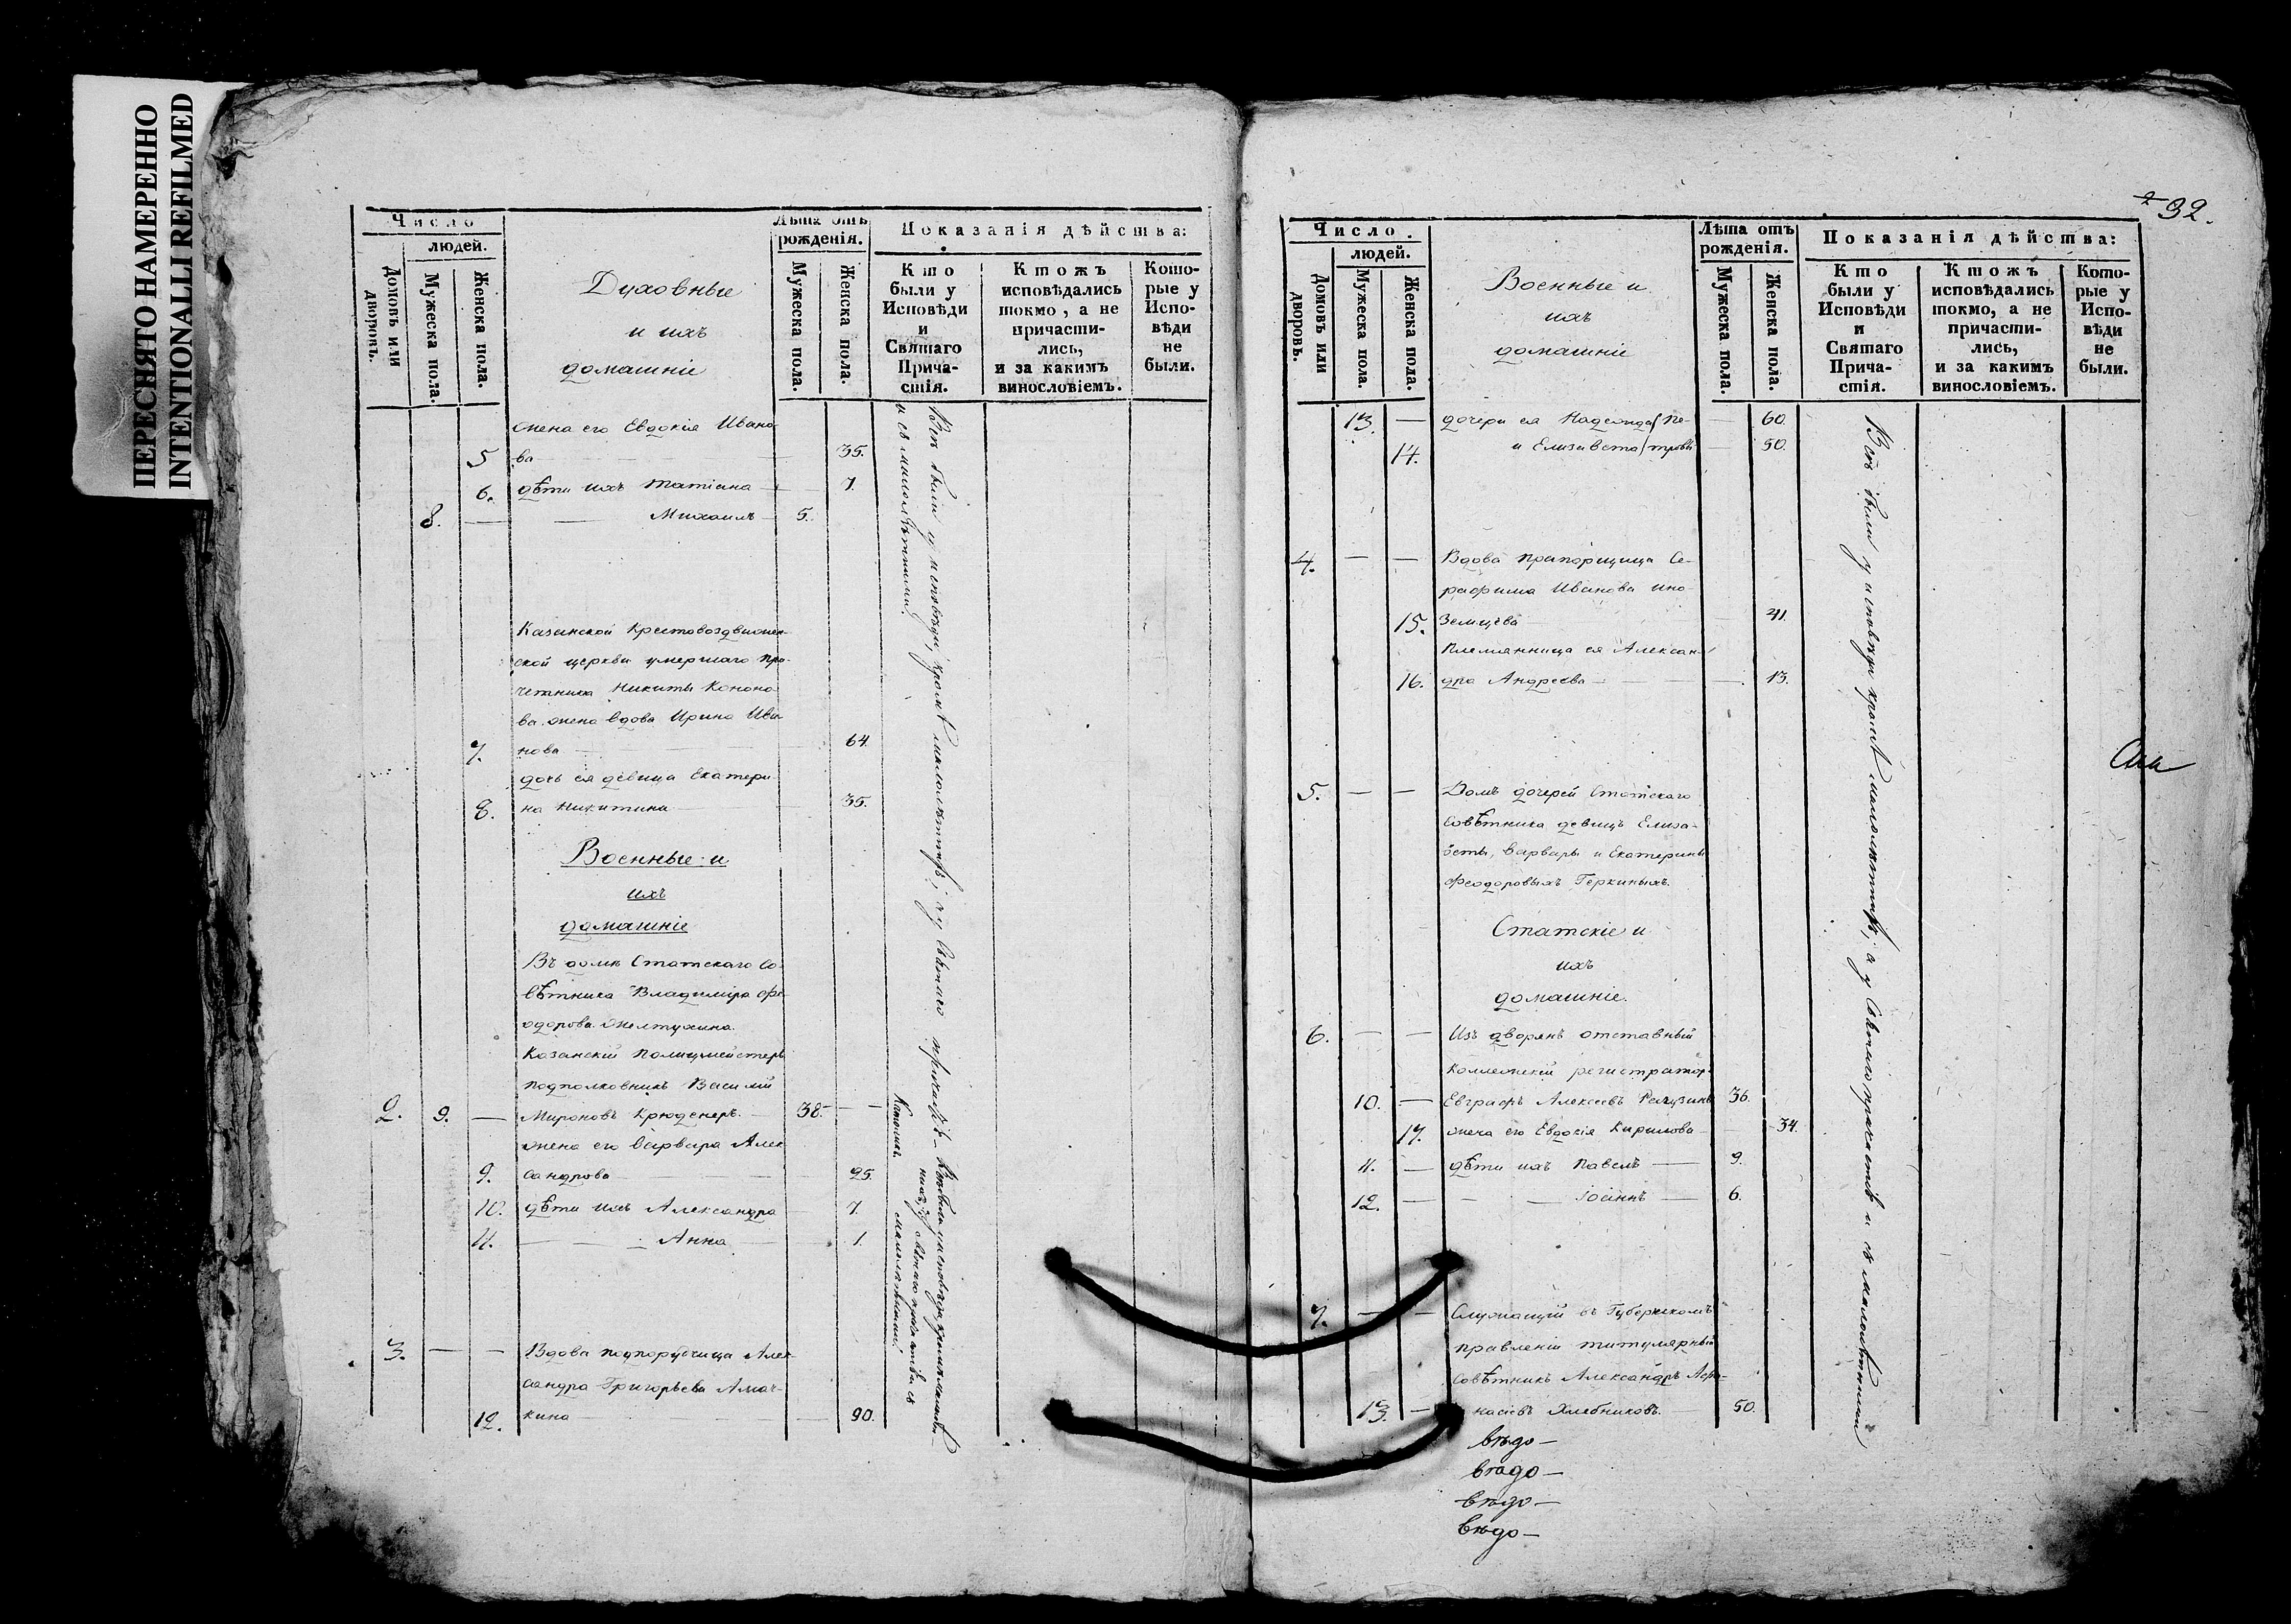 ПЕРЕСНЯТО НАМЕРЕННО
INTENTIONALLI REFILMED
Число
людей.
Домовъ или дворовъ.
Мужеска пола.
Женска пола.
Духовные
и ихъ
домашніе
Лѣта отъ
рожденія.
Мужеска пола.
Женска пола.
Показанія дѣйства:
Кто
были у
Исповѣди
и
Святаго
Прича-
стія.
Ктожъ
исповѣдались
токмо, а не
причасти-
лись,
и за какимъ
винословіемъ.
Кото-
рые у
Испо-
вѣди
не
были.
жена его Евдокія Ивано
5 ва 35.
6. дѣти ихъ Татіана 7.
8. Михаилъ 5.
Казанской Крестовоздвижен-
ской церкви умершаго при-
четника Никиты Конона-
ва жена вдова Ирина Ива
7. нова 64.
дочь ея девица Екатери-
8. на Никитина 35.
Военные и
ихъ
домашніе
Въ домѣ Статскаго Со-
вѣтника Владиміра Фе-
одорова Желтухина.
Казанскій Полицмейстеръ
подполковникъ Василій
2. 9. — Мироновъ Крюденеръ. 38. —
жена его Варвара Алек
9. сандрова 25.
10. дѣти ихъ Александра 7.
11. Анна 1.
3. — — Вдова подпоручица Алек-
сандра Григорьева Алмач-
12. кина 90.
Всѣ были у исповѣди, кромѣ малолѣтнихъ; а у Святаго причастія
и съ малолѣтними.
32.
Число.
людей.
Домовъ или дворовъ.
Мужеска пола.
Женска пола.
Военные и
ихъ
домашніе
Лѣта отъ
рожденія.
Мужеска пола.
Женска пола.
Показанія дѣйства:
Кто
были у
Исповѣди
и
Святаго
Прича-
стія.
Ктожъ
исповѣдались
токмо, а не
причасти-
лись,
и за какимъ
винословіемъ.
Кото-
рые у
Испо-
вѣди
не
были.
13. — дочери ея Надежда Пе- 60.
14. и Елизавета тровы 50.
4. — — Вдова прапорщица Се-
рафима Иванова Ино-
15. Земцева 41.
племянница ея Алексан-
16. дра Андреева 13.
5. — — Домъ дочерей Статскаго
Совѣтника девицъ Елиза-
веты, Варвары и Екатерины
Феодоровыхъ Геркиныхъ.
Статскіе и
ихъ
домашніе.
6. — — Изъ дворянъ отставный
коллежскій регистраторъ
10. — Евграфъ Алексѣевъ 36.
17. жена его Евдокія Кирилова 34.
11. — дѣти ихъ Павелъ 9.
12. — Іоаннъ 6.
7. — — Служащій въ Губернскомъ
правленіи титулярный
совѣтникъ Александръ Афа-
13. — насіевъ Хлебниковъ. 50.
Всѣ были у исповѣди кромѣ малолѣтнихъ; а у Святаго причастія и съ малолѣтними
вѣдо—
вѣдо—
вѣдо—
вѣдо—